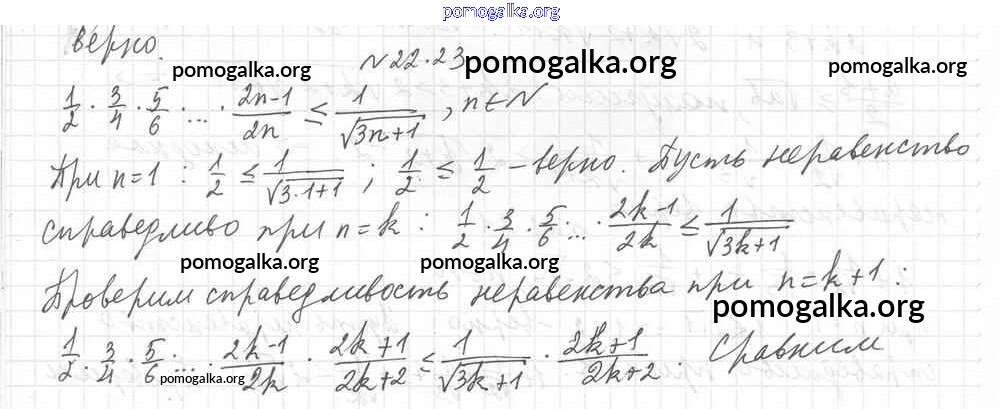 pomogalka.org
верно.
N 22.23
pomogalka.org pomogalka.org
1/2 · 3/4 · 5/6 · ... · (2n-1)/2n ≤ 1/√(3n+1), n∈N pomogalka.org
При n=1 : 1/2 ≤ 1/√(3·1+1) ; 1/2 ≤ 1/2 – верно. Пусть неравенство
справедливо при n=k : 1/2 · 3/4 · 5/6 ... · (2k-1)/2k ≤ 1/√(3k+1)
pomogalka.org pomogalka.org
Проверим справедливость неравенства при n=k+1 :
pomogalka.org
1/2 · 3/4 · 5/6 · ... · (2k-1)/2k · (2k+1)/(2k+2) ≤ 1/√(3k+1) · (2k+1)/(2k+2) . Сравним
pomogalka.org